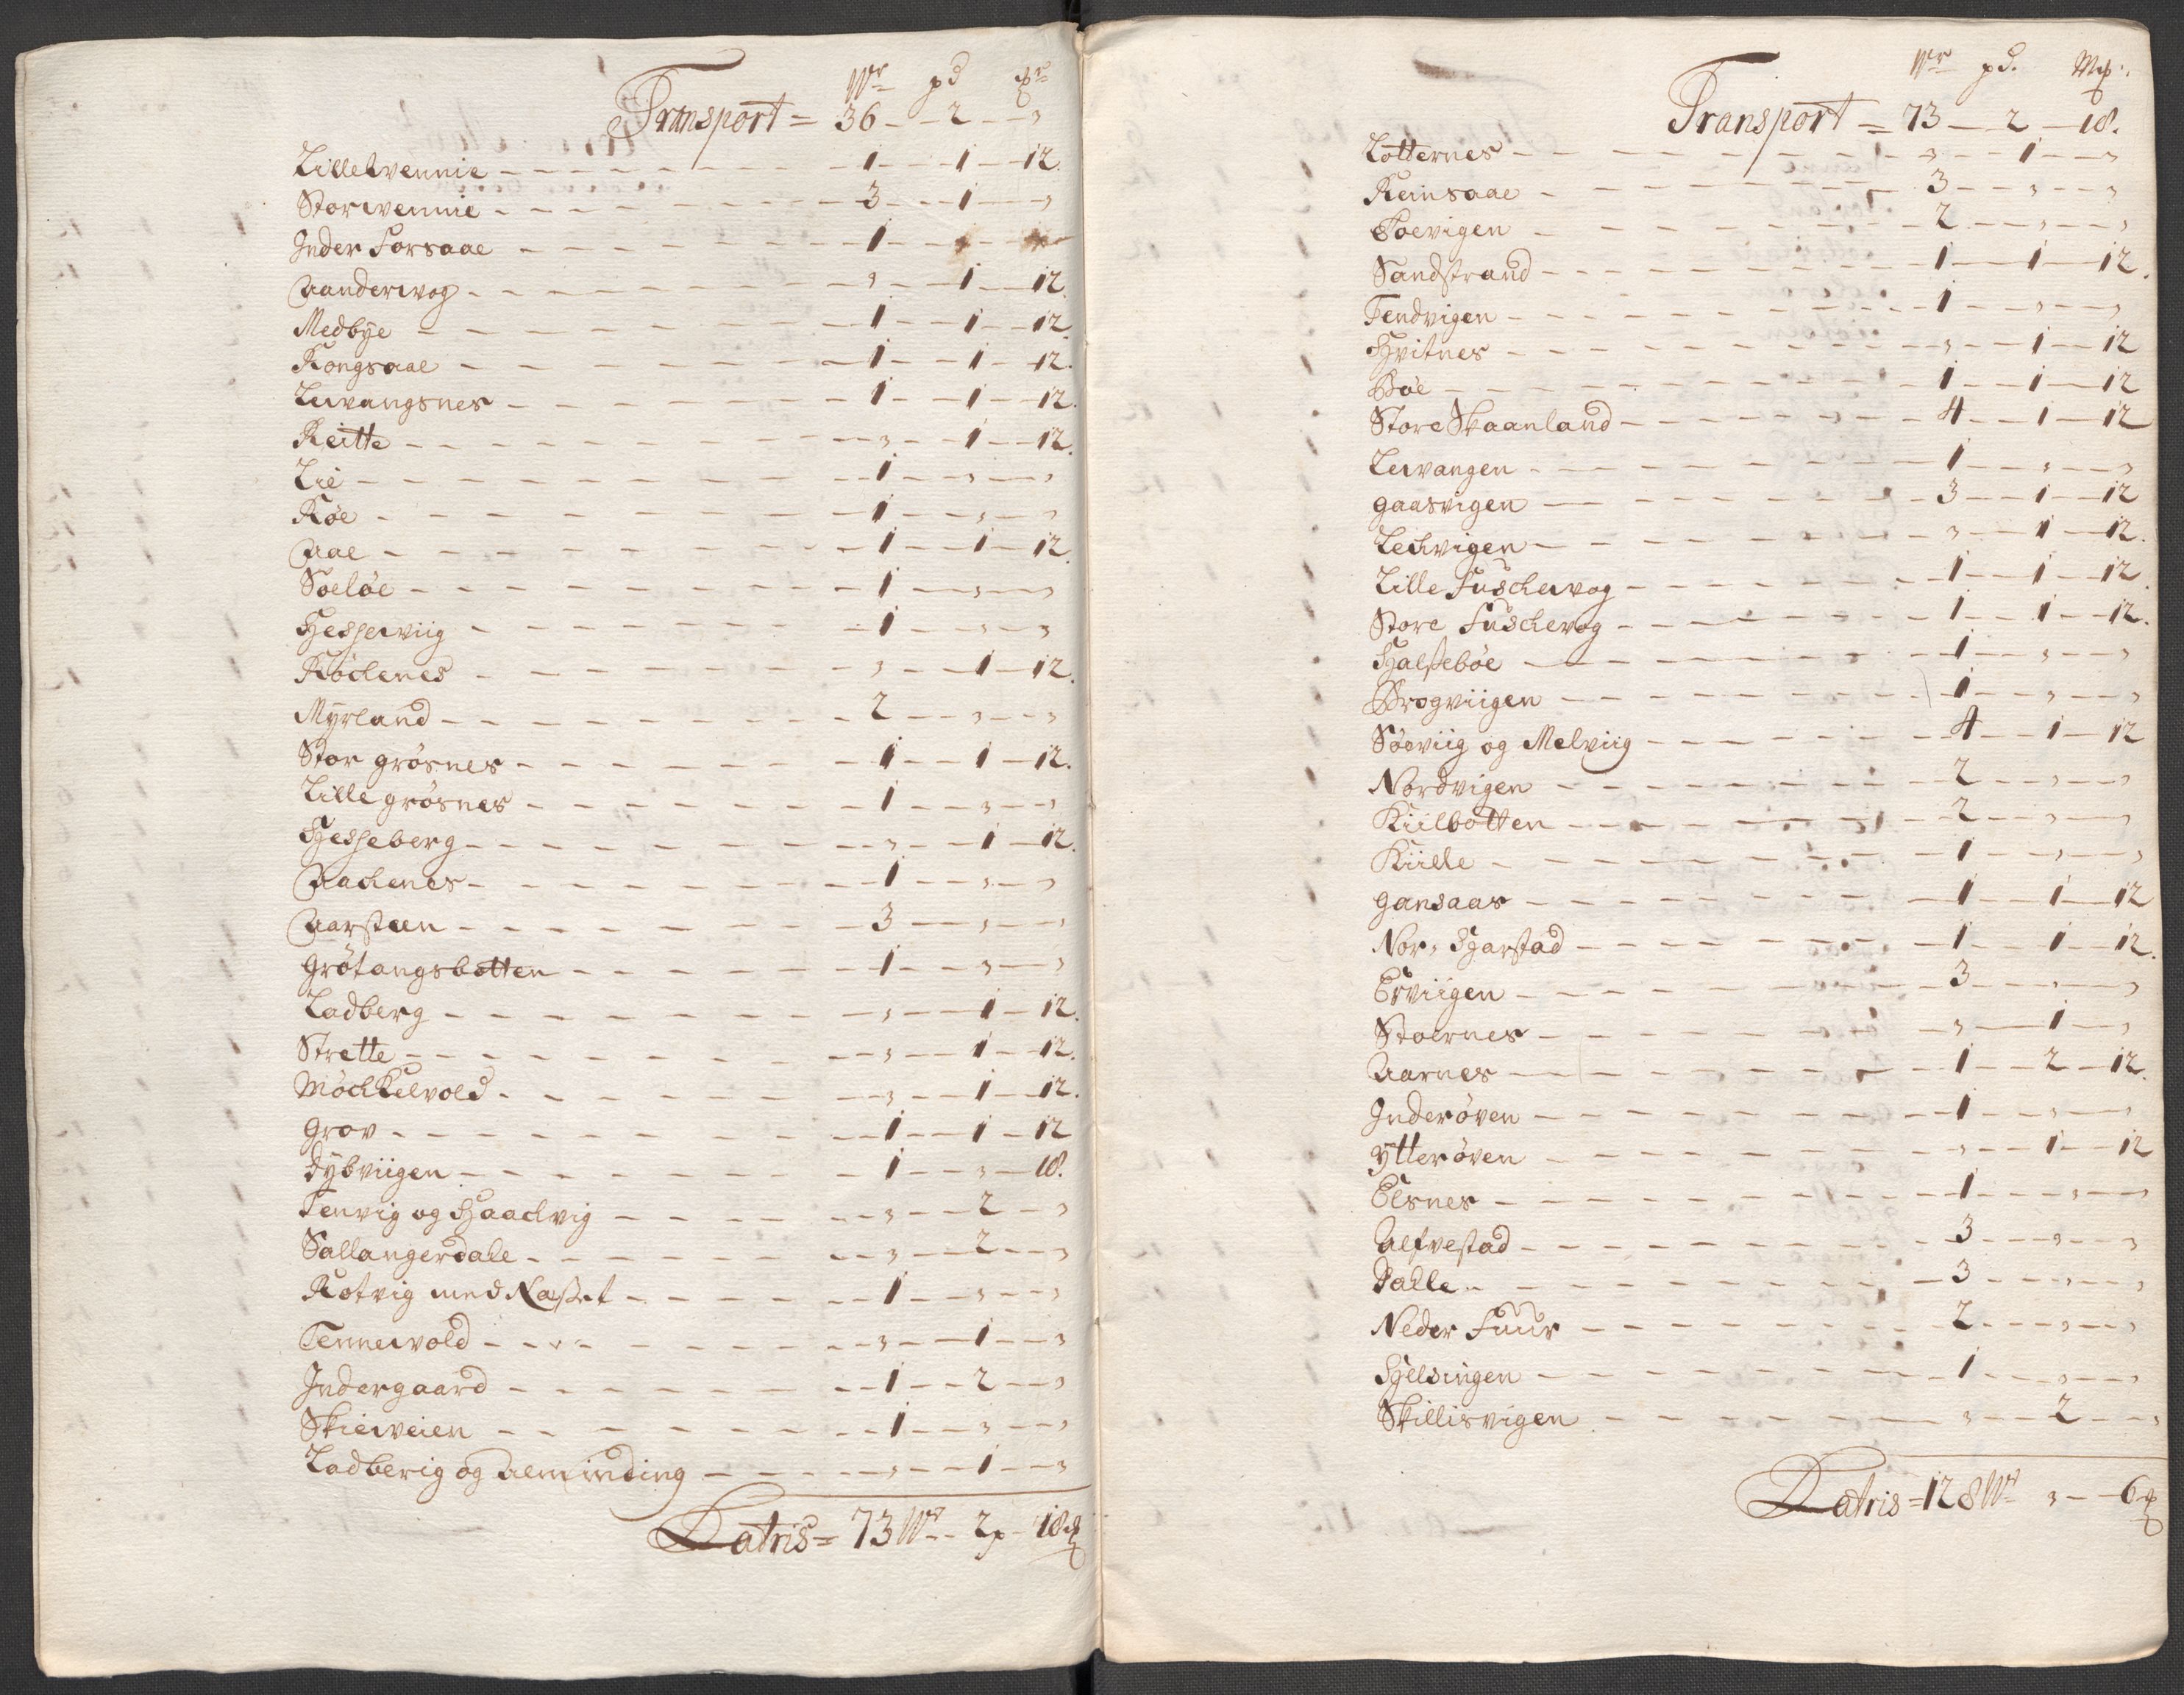 Wr pd
Transport = 36 - 2 - „
Lillelvennie - 1 - 1 - 12.
Storevennie - 3 - 1 - „
Inder Forsaae - 1
Aanderwog - „ - 1 - 12.
Medbÿe - 1 - 1 - 12
Kongsaae - 1 - 1 - 12.
Lewangsnes - 1 - 1 - 12.
Reitte - „ - 1 - 12.
Lie - 1 - „ - „
Røe - 1 - „ - „
Aae - 1 - 1 - 12
Soeløe - 1 - „ - „
Hesjewiig - 1 - „ - „
Røchenes - „ - 1 - 12.
Myrland - 2 - „ - „
Stor grøsnes - 1 - 1 - 12.
Lille grøsnes - 1 - „ - „
Hesjeberg - „ - 1 - 12.
Aachenes - 1 - „ - „
Aarsteen - 3 - „ - „
Grøtangsbotten - 1 - „ - „
Ladberg - „ - 1 - 12.
Strette - „ - 1 - 12.
Møchkelvold - „ - 1 - 12.
Grov - 1 - 1 - 12
Dybviigen - 1 - „ - 18.
Tenvig og Haachvig - „ - 2 - „
Sallangerdale - „ - 2 - „
Rotvig med Nasset - 1 - „ - „
Tennewold - „ - 1 - „
Indergaard - 1 - 2 - „
Skieweien - 1 - „ - „
Ladberig og Aleminding - „ - 1 - „
Latris = 73 Wr - 2 p - 18
Wr pd. Mp.
Transport = 73 - 2 - 18.
Lotternes - „ - 1 - „
Reinsaae - 3 - „ - „
Boevigen - 2 - „ - „
Sandstrand - 1 - 1 - 12.
Fendvigen - 1 - „ - „
Hvitnes - „ - 1 - 12
Bøe - 1 - 1 - 12
Store Skaanland - 4 - 1 - 12
Lewangen - 1 - „ - „
gaasvigen - 3 - 1 - 12
Lechvigen - „ - 1 - 12.
Lille Fuschewog - 1 - 1 - 12.
Store Fuschevog - 1 - 1 - 12.
Halsebøe - 1 - „ - „
Brogviigen - 1 - „ - „
Søeviig og Melviig - 4 - 1 - 12
Nordvigen - 2 - „ - „
Kiilbotten - 2 - „ - „
Kiille - 1 - „ - „
gansaas - 1 - 1 - 12
Nor, Harstad - 1 - 1 - 12.
Erviigen - 3 - „ - „
Stoernes - „ - 1 - „
Aarnes - 1 - 2 - 12.
Inderøven - 1 - „ - „
ytterøven - „ - 1 - 12
Elsnes - 1 - „ - „
Alfvestad - 3 - „ - „
Dalle - 3 - „ - „
Neder Fuur - 2 - „ - „
Helsingen - 1 - „ - „
Skillisvigen - „ - 2 - „
Latris = 128 Wr „ - 6